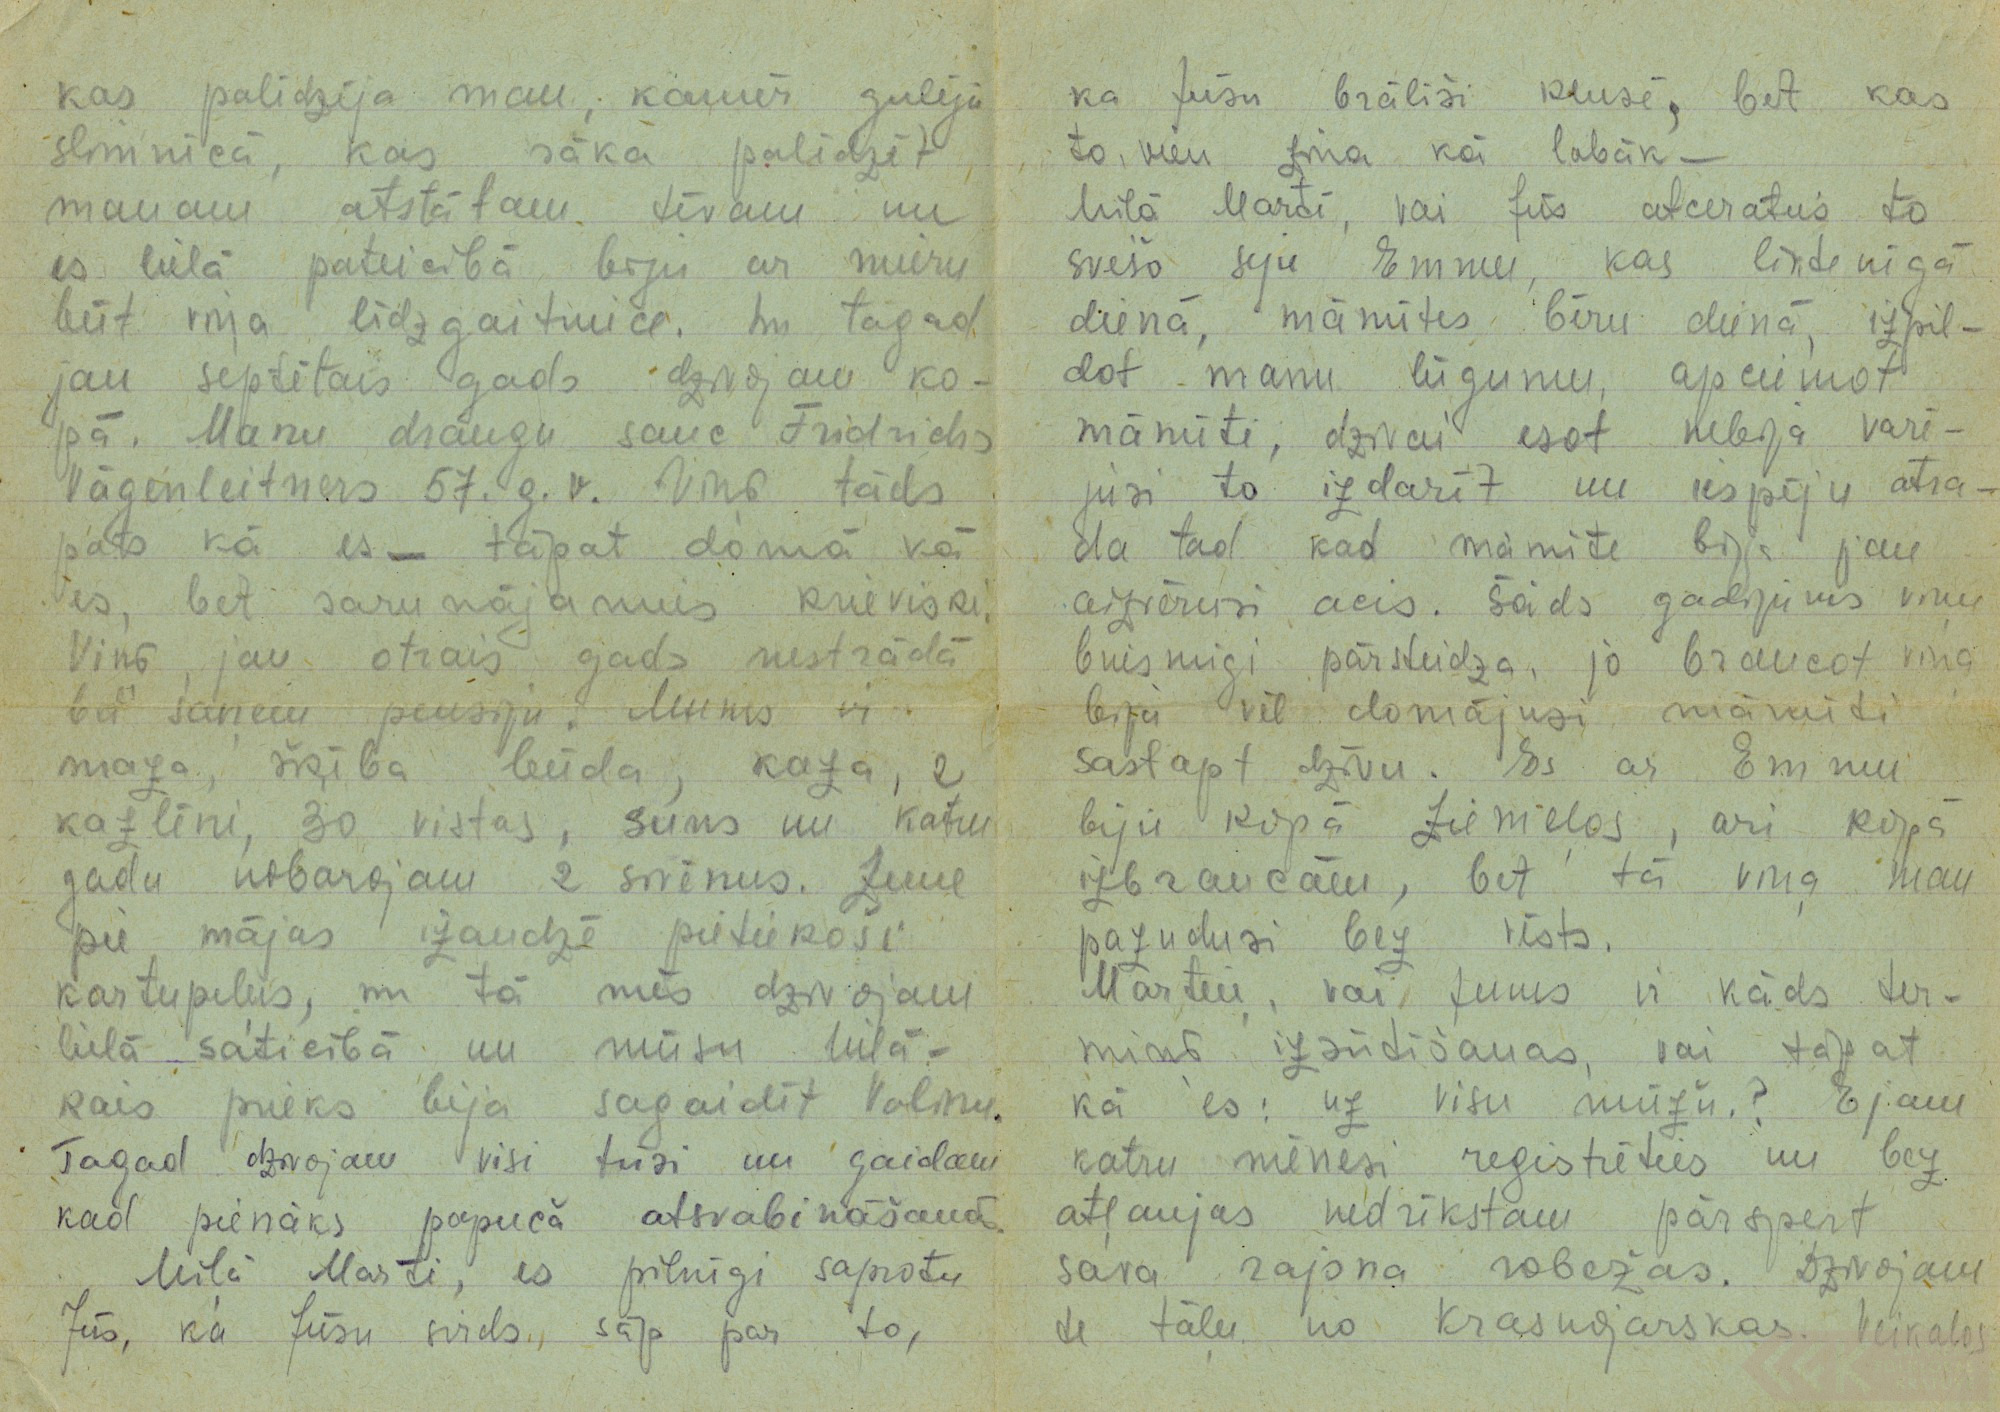 kas palīdzēja man, kamēr gulēju
slimnīcā, kas sāka palīdzēt
manam atstātam tēvam un
es lielā pateicībā biju ar mieru
būt viņa līdzgaitniece. Un tagad
jau septītais gads dzīvojam ko-
pā. Manu draugu sauc Fridrichs
Vāgenleitners 57. g. v. Viņš tāds
pats kā es — tāpat domā kā
es, bet sarunājamies krieviski.
Viņš jau otrais gads nestrādā
bet saņem pensiju. Mums ir
maza, šķība būda, kaza, 2
kazlēni, 30 vistas, suns un katru
gadu nobarojam 2 sivēnus. Zeme
pie mājas izaudzē pietiekoši
kartupeļus, un tā mēs dzīvojam
lielā saticībā un mūsu lielā-
kais prieks bija sagaidīt Valiņu.
Tagad dzīvojam visi trīsi un gaidam
kad pienāks papucā atsvabināšana.
Mīļā Marti, es pilnīgi saprotu
Jūs, kā Jūsu sirds sāp par to,
ka Jūsu brālīši klusē, bet kas
to vien zina kā labāk —
Mīlā Marti, vai Jūs atceraties to
svešo seju Emmu, kas liktenīgā
dienā, māmītes bēru dienā, izpil-
dot manu lūgumu, apciemot
māmīti, dzīvai esot nebija varē-
jusi to izdarīt un iespēju atra-
da tad kad māmīte bija jau
aizvērusi acis. Šāds gadījums viņu
briesmīgi pārsteidza, jo braucot viņa
bija vēl domājusi māmīti
sastapt dzīvu. Es ar Emmu
biju kopā Ziemeļos, arī kopā
izbraucām, bet tā viņa man
pazudusi bez vēsts.
Martiņ, vai Jums ir kāds ter-
miņš izsūtīšanas, vai tāpat
kā es: uz visu mūžu.? Ejam
katru mēnesi reģistrēties un bez
atļaujas nedrīkstam pārspert
sava rajona robežas. Dzīvojam
te tālu no Krasnojarskas. Veikalos